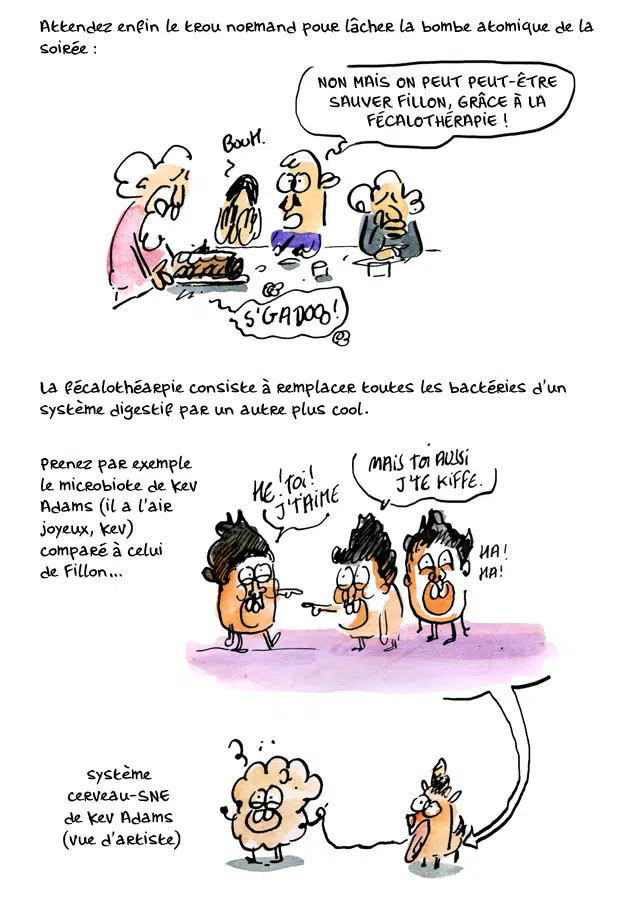 Attendez enfin le trou normand pour lâcher la bombe atomique de la
soirée :
NON MAIS ON PEUT PEUT-ÊTRE
SAUVER FILLON, GRÂCE À LA
FÉCALOTHÉRAPIE !
BouH.
S'GADOO!
La fécalothéarpie consiste à remplacer toutes les bactéries d'un
système digestif par un autre plus cool.
Prenez par exemple
le microbiote de Kev
Adams (il a l'air
joyeux, Kev)
comparé à celui
de Fillon...
HE! Toi!
J'T'AIME
MAIS Toi AUSSI
J'TE KIFFE.
HA!
HA!
système
cerveau-SNE
de Kev Adams
(vue d'artiste)